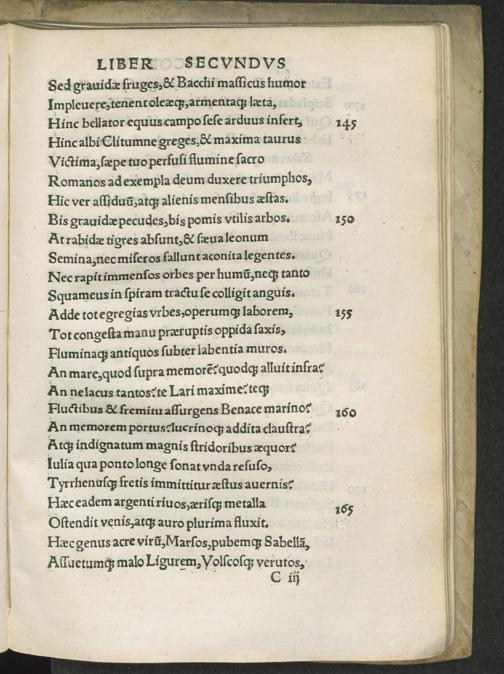 LIBER SECVNDVS
Sed grauidæ fruges, & Bacchi massicus humor
Impleuere, tenent oleæq;, armentaq; læta,
Hinc bellator equus campo sese arduus infert, 145
Hinc albi Clitumne greges, & maxima taurus
Victima, sæpe tuo perfusi flumine sacro
Romanos ad exempla deum duxere triumphos,
Hic ver assiduū, atq; alienis mensibus æstas.
Bis grauidæ pecudes, bis pomis vtilis arbos. 150
At rabidæ tigres absunt, & sæua leonum
Semina, nec miseros fallunt aconita legentes.
Nec rapit immensos orbes per humū, neq; tanto
Squameus in spiram tractu se colligit anguis.
Adde tot egregias vrbes, operumq; laborem, 155
Tot congesta manu præruptis oppida saxis,
Fluminaq; antiquos subter labentia muros.
An mare, quod supra memorē? quodq; alluit infra?
An ne lacus tantos? te Lari maxime? teq;
Fluctibus & fremitu assurgens Benace marino? 160
An memorem portus? lucrinoq; addita claustra?
Atq; indignatum magnis stridoribus æquor?
Iulia qua ponto longe sonat vnda refuso,
Tyrrhenusq; fretis immittitur æstus auernis?
Hæc eadem argenti riuos, ærisq; metalla 165
Ostendit venis, atq; auro plurima fluxit.
Hæc genus acre virū, Marsos, pubemq; Sabellā,
Assuetumq; malo Ligurem, Volscosq; verutos,
C iij